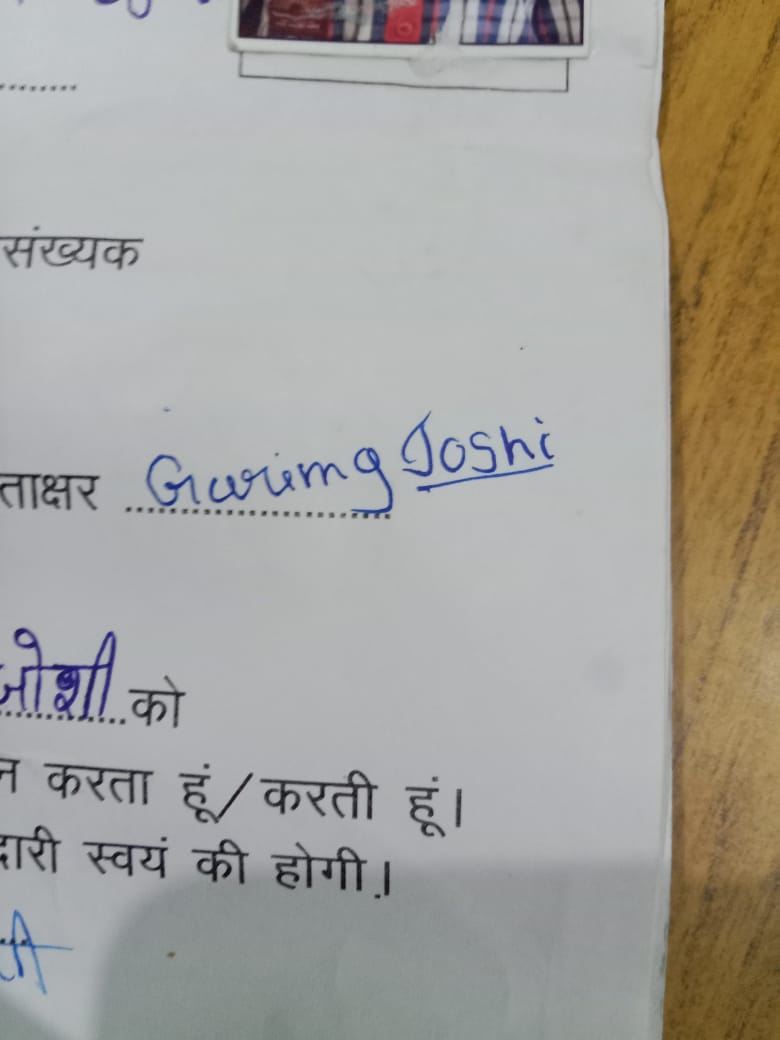 संख्यक
ताक्षर Garima Joshi
जोशी को
न करता हूं/करती हूं।
दारी स्वयं की होगी.।